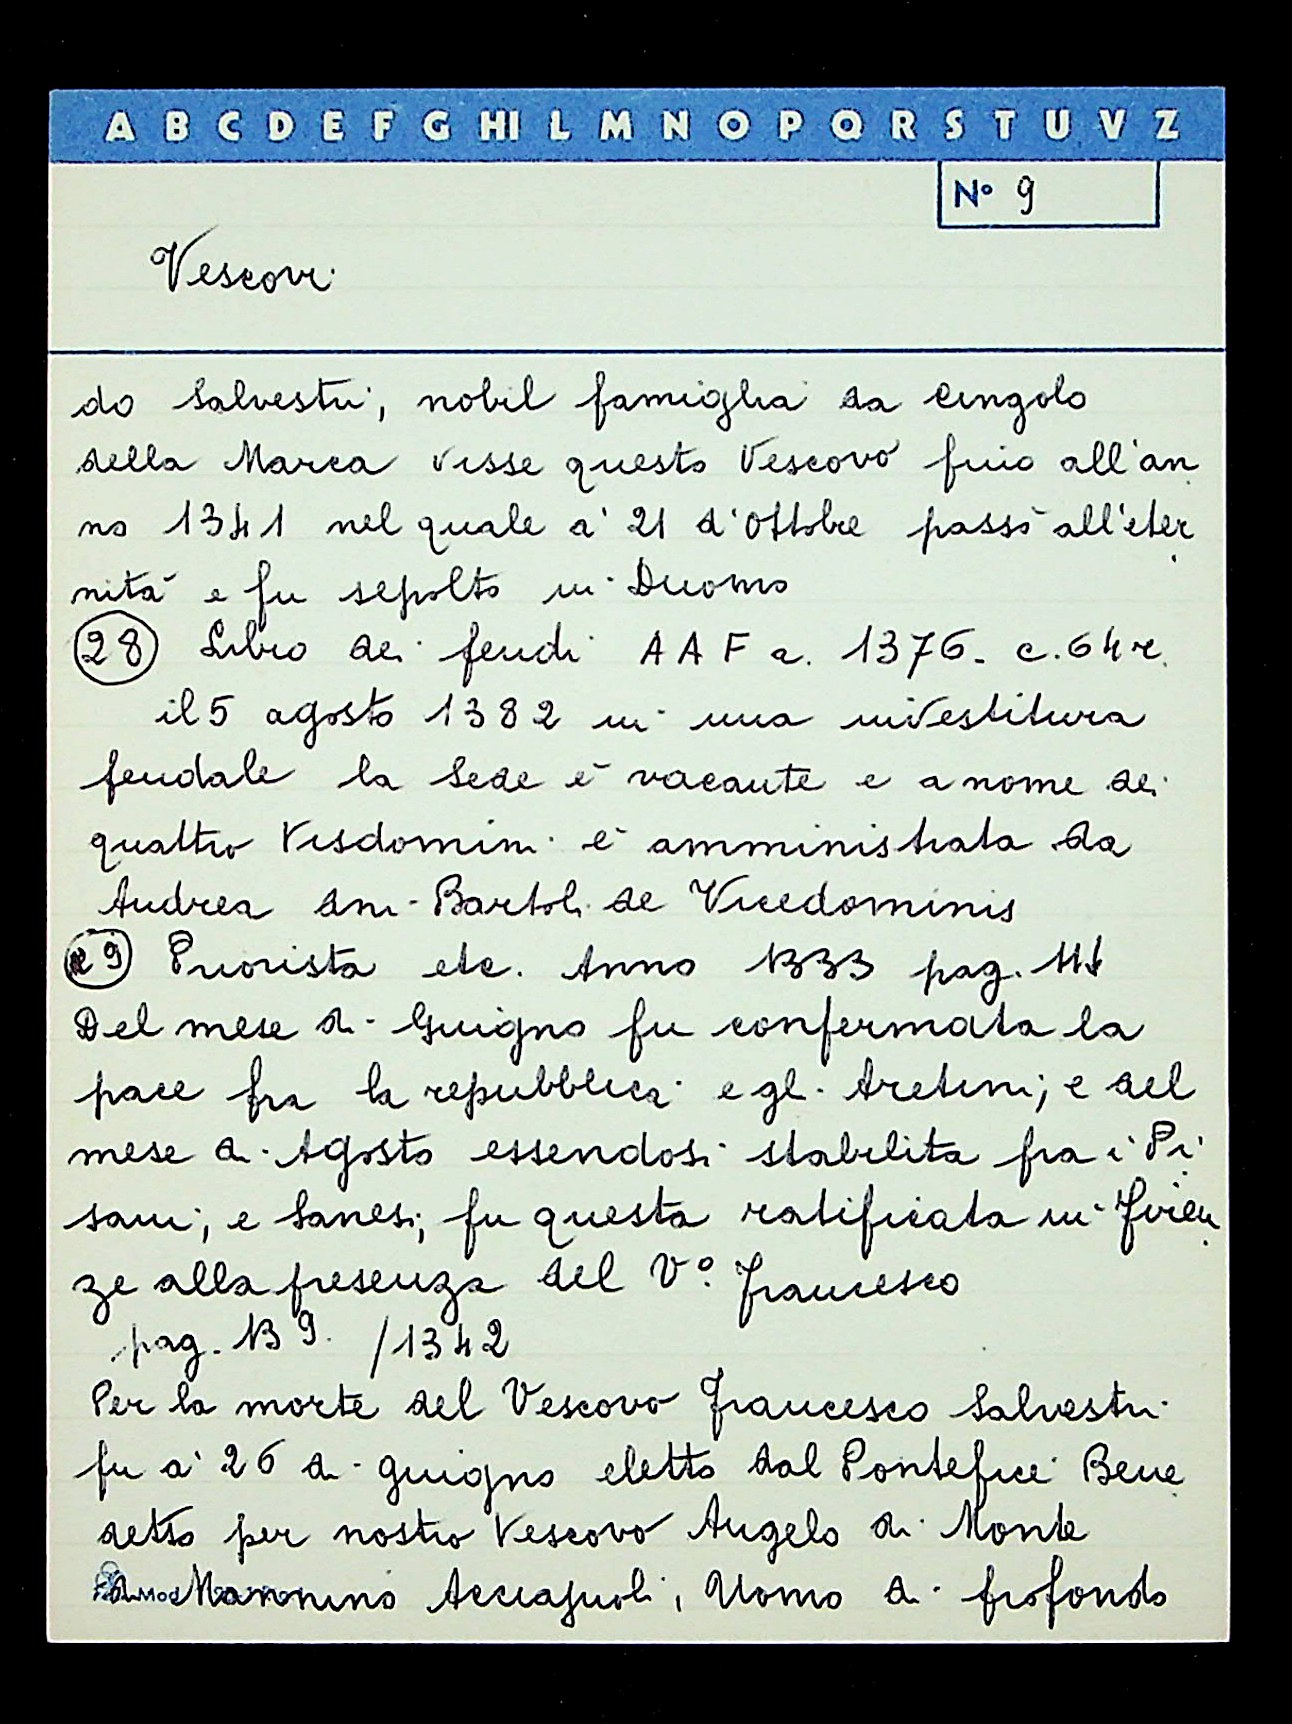 A B C D E F G HI L M N O P Q R S T U V Z
N° 9
Vescovi
do Salvestri, nobil famiglia da Cingolo
della Marca visse questo Vescovo fino all'an
no 1341 nel quale a' 21 d'Ottobre passò all'eter
nità e fu sepolto in Duomo
28 Libro dei feudi A A F a. 1376. c. 64 r.
il 5 agosto 1382 in una investitura
feudale la Sede è vacante e a nome dei
quattro Visdomini è amministrata da
Andrea dni Bartoli de Vicedominis
29 Priorista etc. Anno 1333 pag.
Del mese di Giugno fu confermata la
pace fra la repubblica e gli Aretini; e del
mese di Agosto essendosi stabilita fra i Pi
sani, e Sanesi, fu questa ratificata in Firen
ze alla presenza del V°. Francesco
pag. 139. /1342
Per la morte del Vescovo Francesco Salvestri
fu a' 26 di giugno eletto dal Pontefice Bene
detto per nostro Vescovo Angelo di Monte
di Mannino Acciajuoli, Uomo di profondo